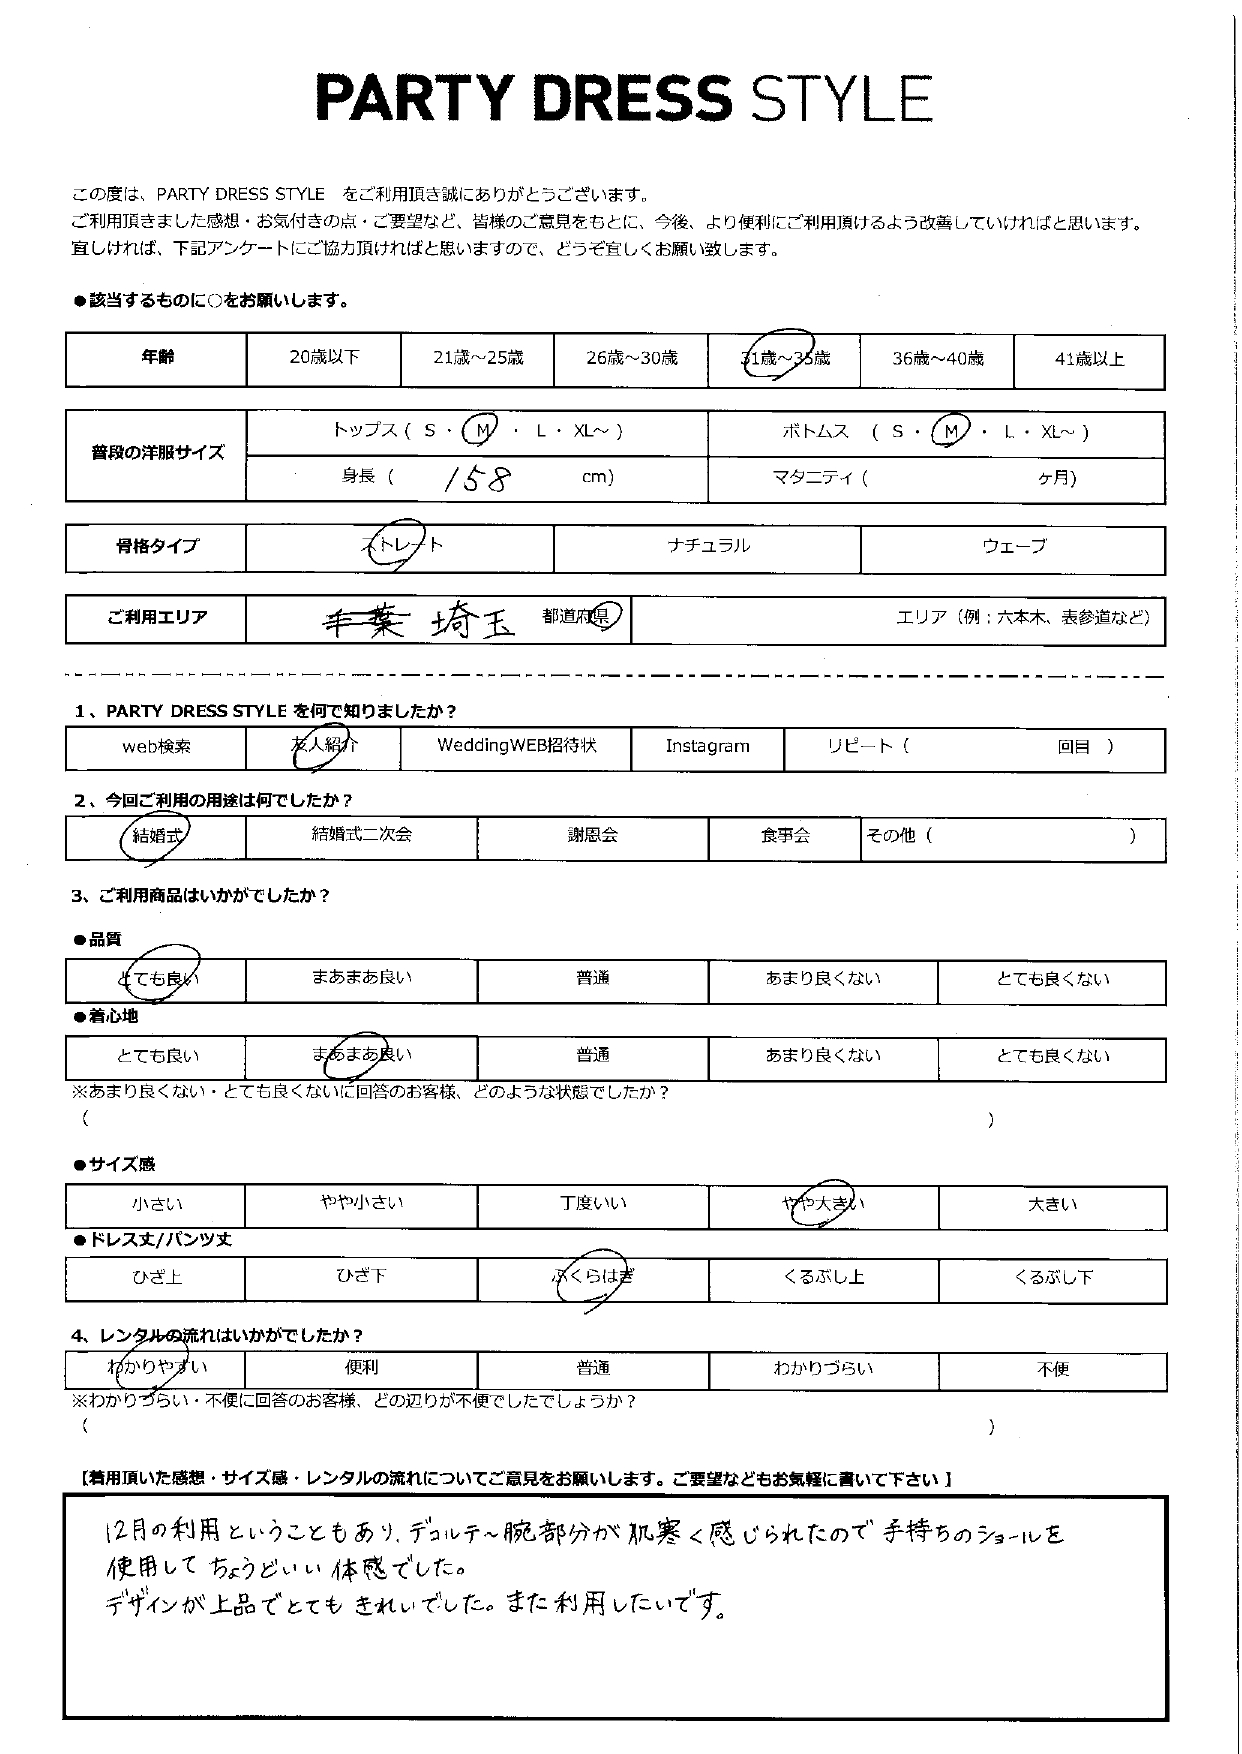 PARTY DRESS STYLE
この度は、PARTY DRESS STYLE をご利用頂き誠にありがとうございます。
ご利用頂きました感想・お気付きの点・ご要望など、皆様のご意見をもとに、今後、より便利にご利用頂けるよう改善していければと思います。
宜しければ、下記アンケートにご協力頂ければと思いますので、どうぞ宜しくお願い致します。
●該当するものに○をお願いします。
年齢 20歳以下 21歳～25歳 26歳～30歳 31歳～35歳 36歳～40歳 41歳以上
普段の洋服サイズ トップス ( S ・ M ・ L ・ XL～ ) ボトムス ( S ・ M ・ L ・ XL～ )
身長 ( 158 cm) マタニティ ( ヶ月)
骨格タイプ ストレート ナチュラル ウェーブ
ご利用エリア 千葉 埼玉 都道府県 エリア（例；六本木、表参道など）
1、PARTY DRESS STYLE を何で知りましたか？
web検索 友人紹介 WeddingWEB招待状 Instagram リピート ( 回目 )
2、今回ご利用の用途は何でしたか？
結婚式 結婚式二次会 謝恩会 食事会 その他 ( )
3、ご利用商品はいかがでしたか？
●品質
とても良い まあまあ良い 普通 あまり良くない とても良くない
●着心地
とても良い まあまあ良い 普通 あまり良くない とても良くない
※あまり良くない・とても良くないに回答のお客様、どのような状態でしたか？
( )
●サイズ感
小さい やや小さい 丁度いい やや大きい 大きい
●ドレス丈/パンツ丈
ひざ上 ひざ下 ふくらはぎ くるぶし上 くるぶし下
4、レンタルの流れはいかがでしたか？
わかりやすい 便利 普通 わかりづらい 不便
※わかりづらい・不便に回答のお客様、どの辺りが不便でしたでしょうか？
( )
【着用頂いた感想・サイズ感・レンタルの流れについてご意見をお願いします。ご要望などもお気軽に書いて下さい】
12月の利用ということもあり、デコルテ～腕部分が肌寒く感じられたので手持ちのショールを
使用してちょうどいい体感でした。
デザインが上品でとてもきれいでした。また利用したいです。